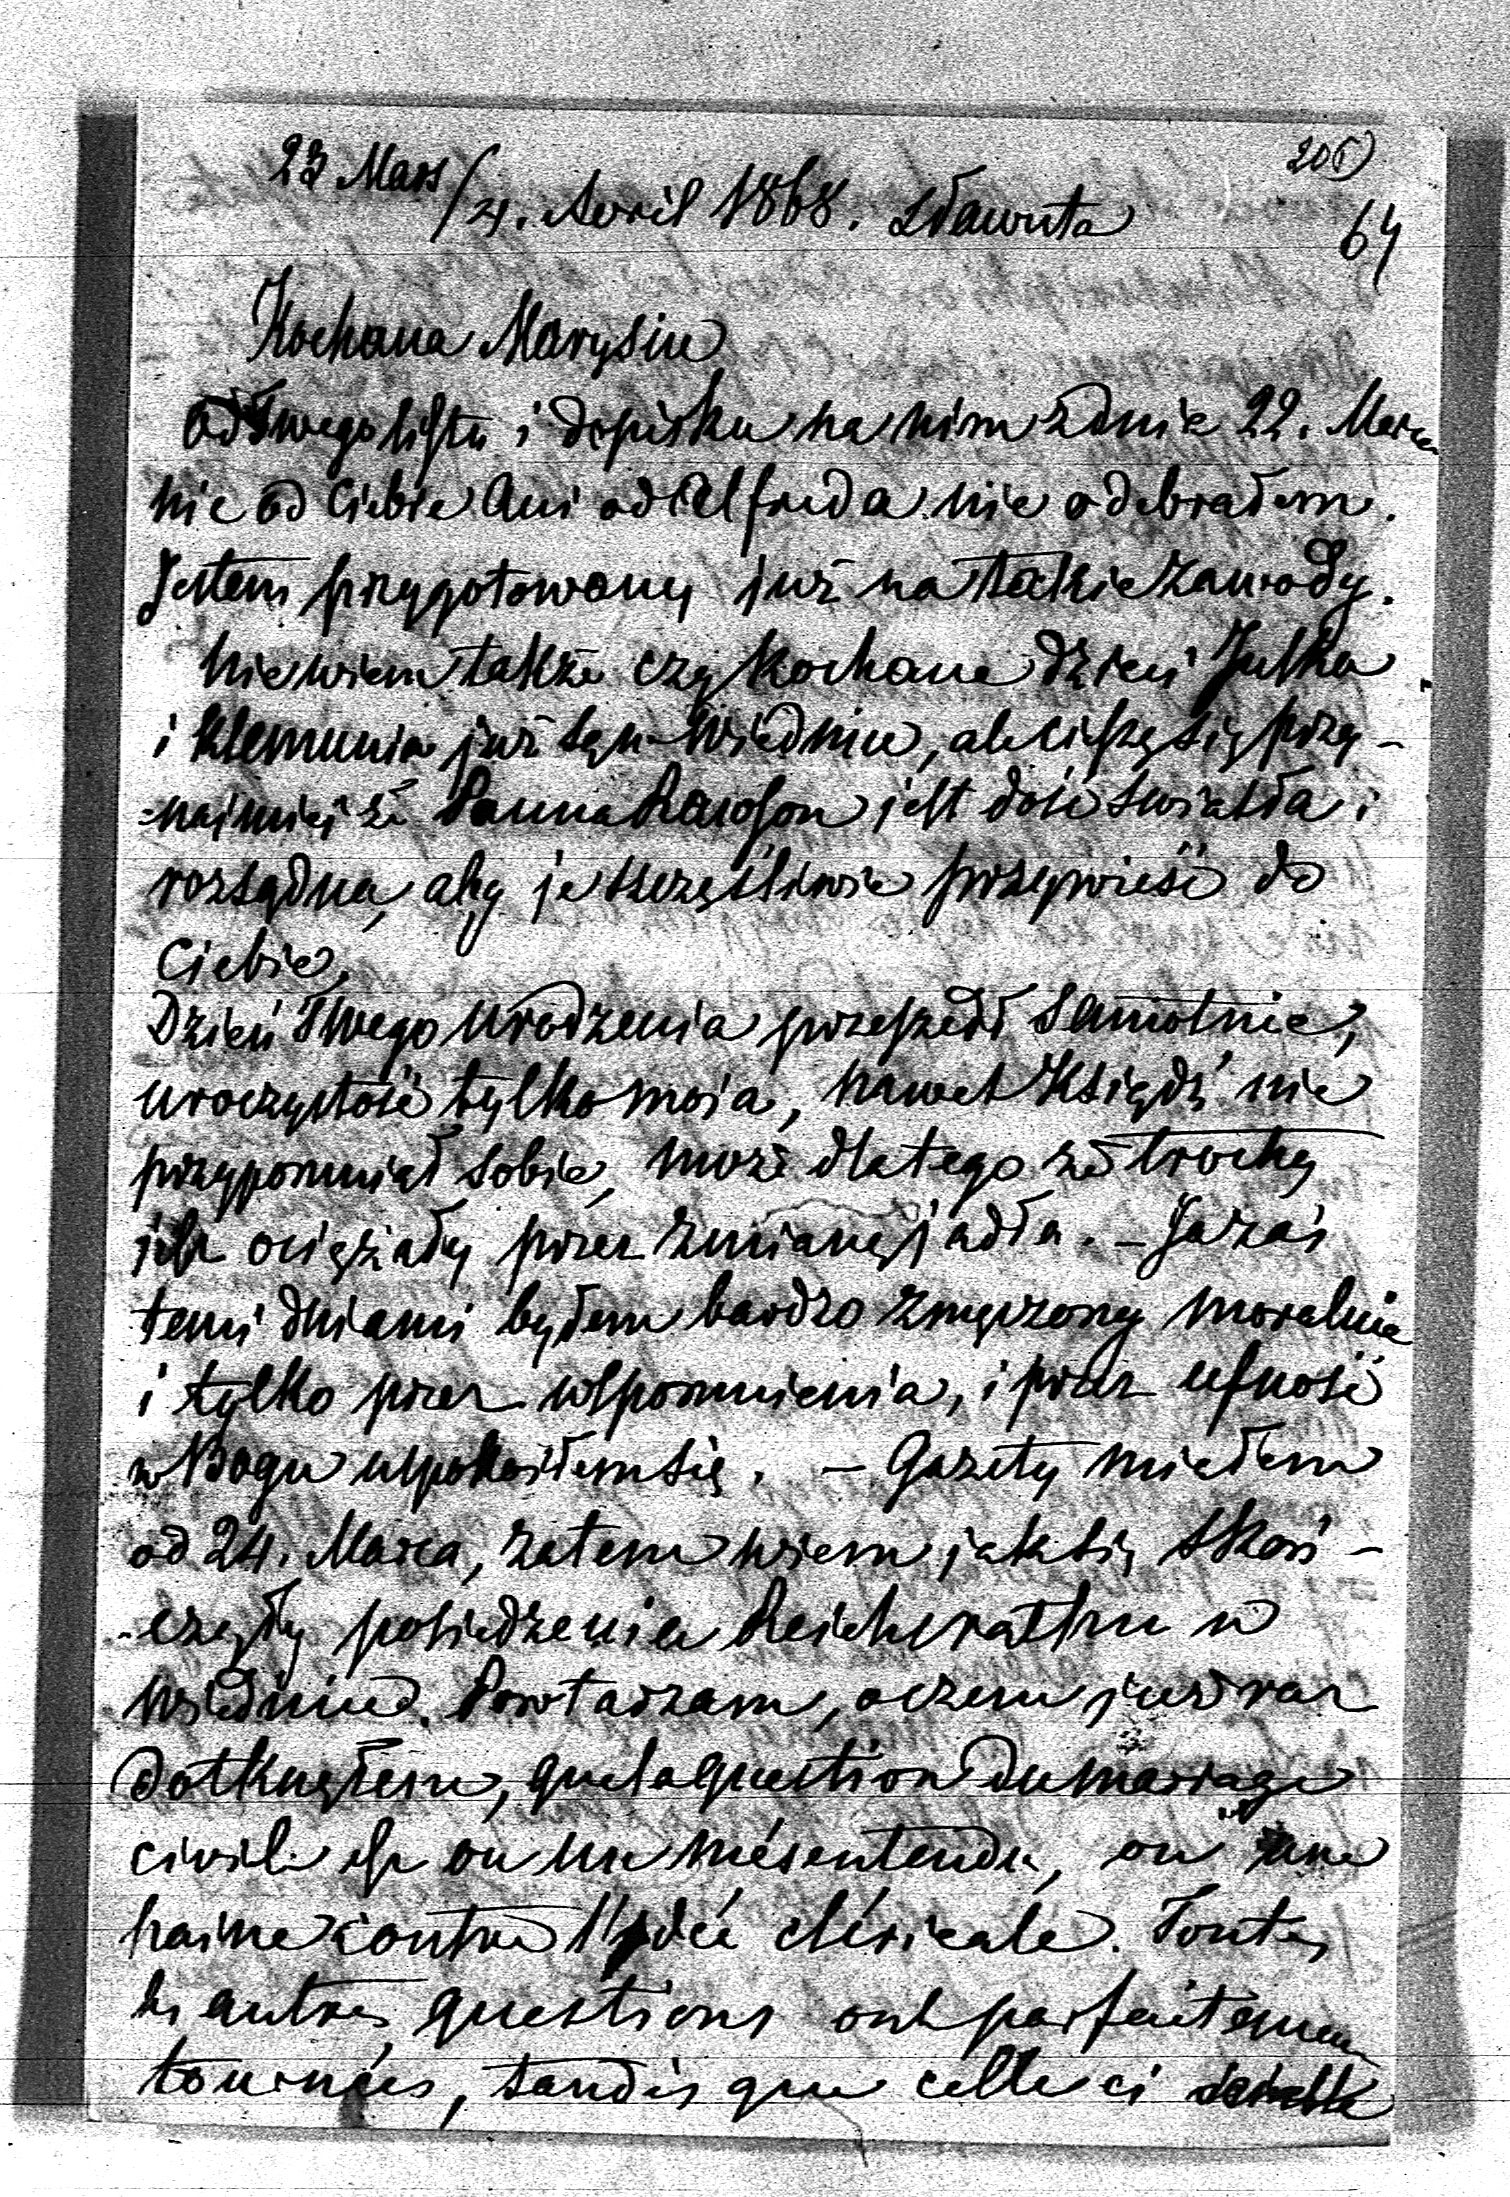 205)
23 Mars/4. Avril 1868. Sławuta
64
Kochana Marysiu
od Twego listu i dopisku na nim z dnia 22. Marca
nic od Ciebie ani od Alfreda nie odebrałem.
Jestem przygotowany już na takie zawody.
Nie wiem także czy kochane dzieci Julka
i Klemunia już są w Wiedniu, ale cieszę się przy-
-najmniej że Panna Rawson jest dość światła i
rozsądna, aby je szczęśliwie przywieść do
Ciebie.
Dzień Twego urodzenia przeszedł samotnie,
uroczystość tylko moja, nawet Ksiądz nie
przypomniał sobie, może dlatego że trochę
jest ociężały przez zmianę jadła. – Ja zaś
temi dniami byłem bardzo zmęczony moralnie
i tylko przez wspomnienia, i przez ufność
w Bogu uspokoiłem się. – Gazety miałem
od 24. Marca, zatem wiem jak się skoń-
-czyły posiedzenia Reichsrathu w
Wiedniu. Powtarzam, o czem już raz
dotknąłem, que la question du mariage
civil est ou un mésentendu, ou une
haine contre l'idée cléricale. Toutes
les autres questions ont parfaitement
tournées, tandis que celle ci